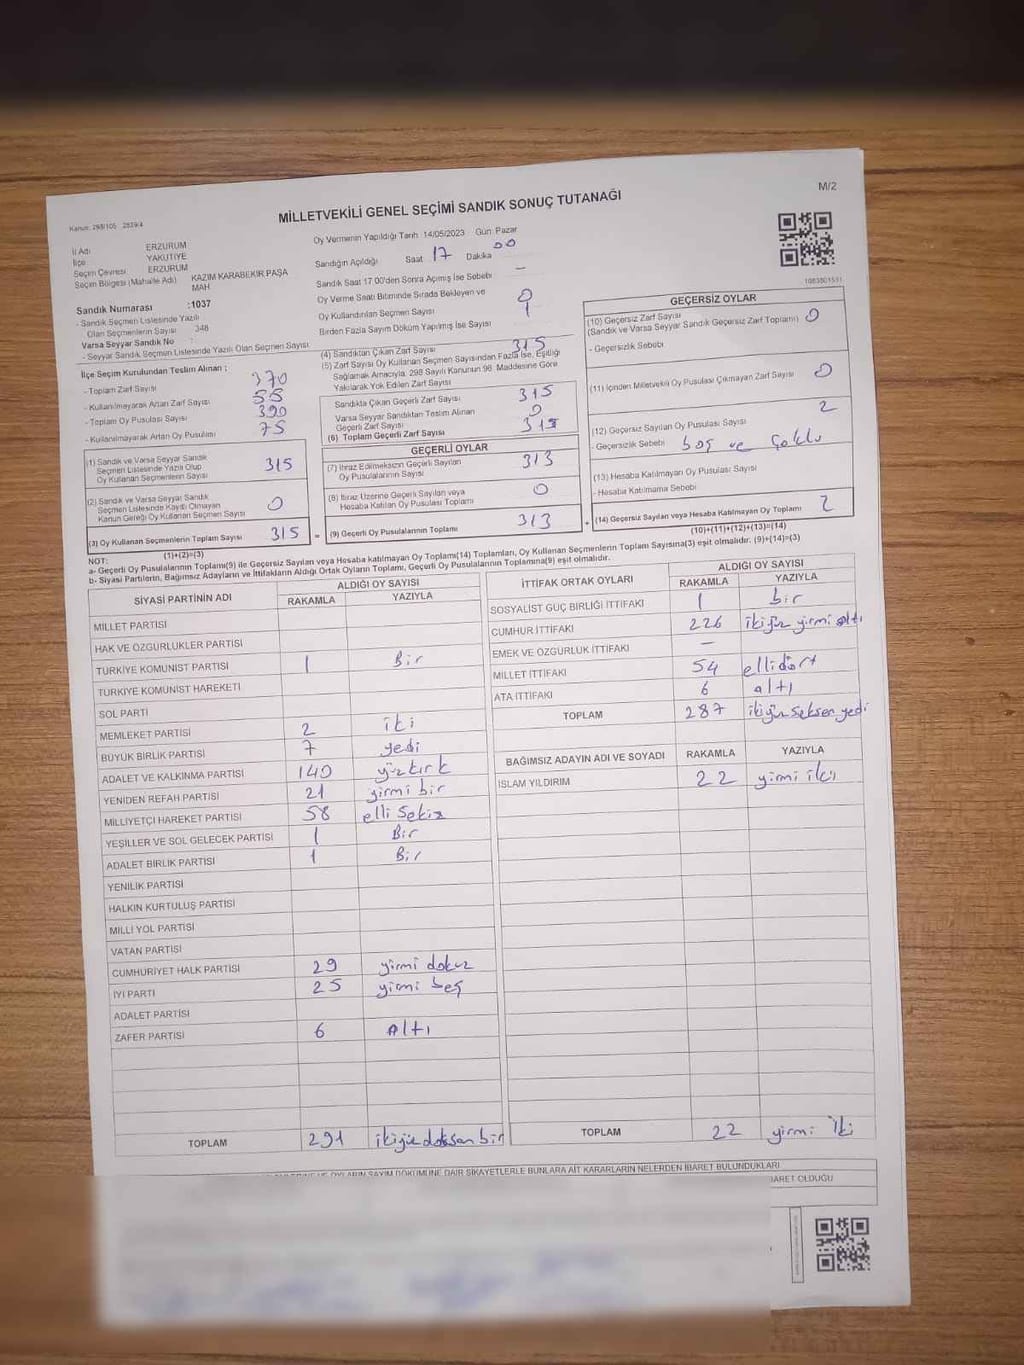 M/2
Kanun: 298/105 2839/4
MİLLETVEKİLİ GENEL SEÇİMİ SANDIK SONUÇ TUTANAĞI
İl Adı ERZURUM
İlçe YAKUTİYE
Seçim Çevresi ERZURUM
Seçim Bölgesi (Mahalle Adı) KAZIM KARABEKİR PAŞA MAH
Sandık Numarası :1037
- Sandık Seçmen Listesinde Yazılı
Olan Seçmenlerin Sayısı 348
Varsa Seyyar Sandık No :
- Seyyar Sandık Seçmen Listesinde Yazılı Olan Seçmen Sayısı
Oy Vermenin Yapıldığı Tarih 14/05/2023 Gün: Pazar
Sandığın Açıldığı Saat 17 Dakika 00
Sandık Saat 17.00'den Sonra Açılmış İse Sebebi —
Oy Verme Saati Bitiminde Sırada Bekleyen ve
Oy Kullandırılan Seçmen Sayısı 0
Birden Fazla Sayım Döküm Yapılmış İse Sayısı 1
İlçe Seçim Kurulundan Teslim Alınan :
- Toplam Zarf Sayısı 370
- Kullanılmayarak Artan Zarf Sayısı 55
- Toplam Oy Pusulası Sayısı 390
- Kullanılmayarak Artan Oy Pusulası 75
(1) Sandık ve Varsa Seyyar Sandık
Seçmen Listesinde Yazılı Olup
Oy Kullanan Seçmenlerin Sayısı 315
(2) Sandık ve Varsa Seyyar Sandık
Seçmen Listesinde Kaydı Olmayan
Kanun Gereği Oy Kullanan Seçmen Sayısı 0
(3) Oy Kullanan Seçmenlerin Toplam Sayısı 315
(1)+(2)=(3)
(4) Sandıktan Çıkan Zarf Sayısı 315
(5) Zarf Sayısı Oy Kullanan Seçmen Sayısından Fazla İse, Eşitliği
Sağlamak Amacıyla, 298 Sayılı Kanunun 98. Maddesine Göre
Yakılarak Yok Edilen Zarf Sayısı
Sandıkta Çıkan Geçerli Zarf Sayısı 315
Varsa Seyyar Sandıktan Teslim Alınan
Geçerli Zarf Sayısı 0
(6) Toplam Geçerli Zarf Sayısı 315
GEÇERLİ OYLAR
(7) İtiraz Edilmeksizin Geçerli Sayılan
Oy Pusulalarının Sayısı 313
(8) İtiraz Üzerine Geçerli Sayılan veya
Hesaba Katılan Oy Pusulası Toplamı 0
= (9) Geçerli Oy Pusulalarının Toplamı 313
1083801531
GEÇERSİZ OYLAR
(10) Geçersiz Zarf Sayısı
(Sandık ve Varsa Seyyar Sandık Geçersiz Zarf Toplamı) 0
- Geçersizlik Sebebi
(11) İçinden Milletvekili Oy Pusulası Çıkmayan Zarf Sayısı 0
(12) Geçersiz Sayılan Oy Pusulası Sayısı 2
- Geçersizlik Sebebi boş ve Çoklu
(13) Hesaba Katılmayan Oy Pusulası Sayısı
- Hesaba Katılmama Sebebi
+ (14) Geçersiz Sayılan veya Hesaba Katılmayan Oy Toplamı 2
(10)+(11)+(12)+(13)=(14)
NOT:
a- Geçerli Oy Pusulalarının Toplamı(9) ile Geçersiz Sayılan veya Hesaba katılmayan Oy Toplamı(14) Toplamları, Oy Kullanan Seçmenlerin Toplam Sayısına(3) eşit olmalıdır. (9)+(14)=(3)
b- Siyasi Partilerin, Bağımsız Adayların ve İttifakların Aldığı Ortak Oyların Toplamı, Geçerli Oy Pusulalarının Toplamına(9) eşit olmalıdır.
SİYASİ PARTİNİN ADI ALDIĞI OY SAYISI
RAKAMLA YAZIYLA
MİLLET PARTİSİ
HAK VE ÖZGÜRLÜKLER PARTİSİ
TÜRKİYE KOMÜNİST PARTİSİ 1 Bir
TÜRKİYE KOMÜNİST HAREKETİ
SOL PARTİ
MEMLEKET PARTİSİ 2 iki
BÜYÜK BİRLİK PARTİSİ 7 yedi
ADALET VE KALKINMA PARTİSİ 140 yüzkırk
YENİDEN REFAH PARTİSİ 21 yirmi bir
MİLLİYETÇİ HAREKET PARTİSİ 58 elli sekiz
YEŞİLLER VE SOL GELECEK PARTİSİ 1 Bir
ADALET BİRLİK PARTİSİ 1 Bir
YENİLİK PARTİSİ
HALKIN KURTULUŞ PARTİSİ
MİLLİ YOL PARTİSİ
VATAN PARTİSİ
CUMHURİYET HALK PARTİSİ 29 yirmi dokuz
İYİ PARTİ 25 yirmi beş
ADALET PARTİSİ
ZAFER PARTİSİ 6 Altı
TOPLAM 291 ikiyüz doksan bir
İTTİFAK ORTAK OYLARI ALDIĞI OY SAYISI
RAKAMLA YAZIYLA
SOSYALİST GÜÇ BİRLİĞİ İTTİFAKI 1 bir
CUMHUR İTTİFAKI 226 ikiyüz yirmi altı
EMEK VE ÖZGÜRLÜK İTTİFAKI —
MİLLET İTTİFAKI 54 ellidört
ATA İTTİFAKI 6 altı
TOPLAM 287 ikiyüz seksen yedi
BAĞIMSIZ ADAYIN ADI VE SOYADI RAKAMLA YAZIYLA
İSLAM YILDIRIM 22 yirmi iki
TOPLAM 22 yirmi İki
OYLARIN SAYIM DÖKÜMÜNE DAİR ŞİKAYETLERLE BUNLARA AİT KARARLARIN NELERDEN İBARET BULUNDUKLARI
İBARET OLDUĞU